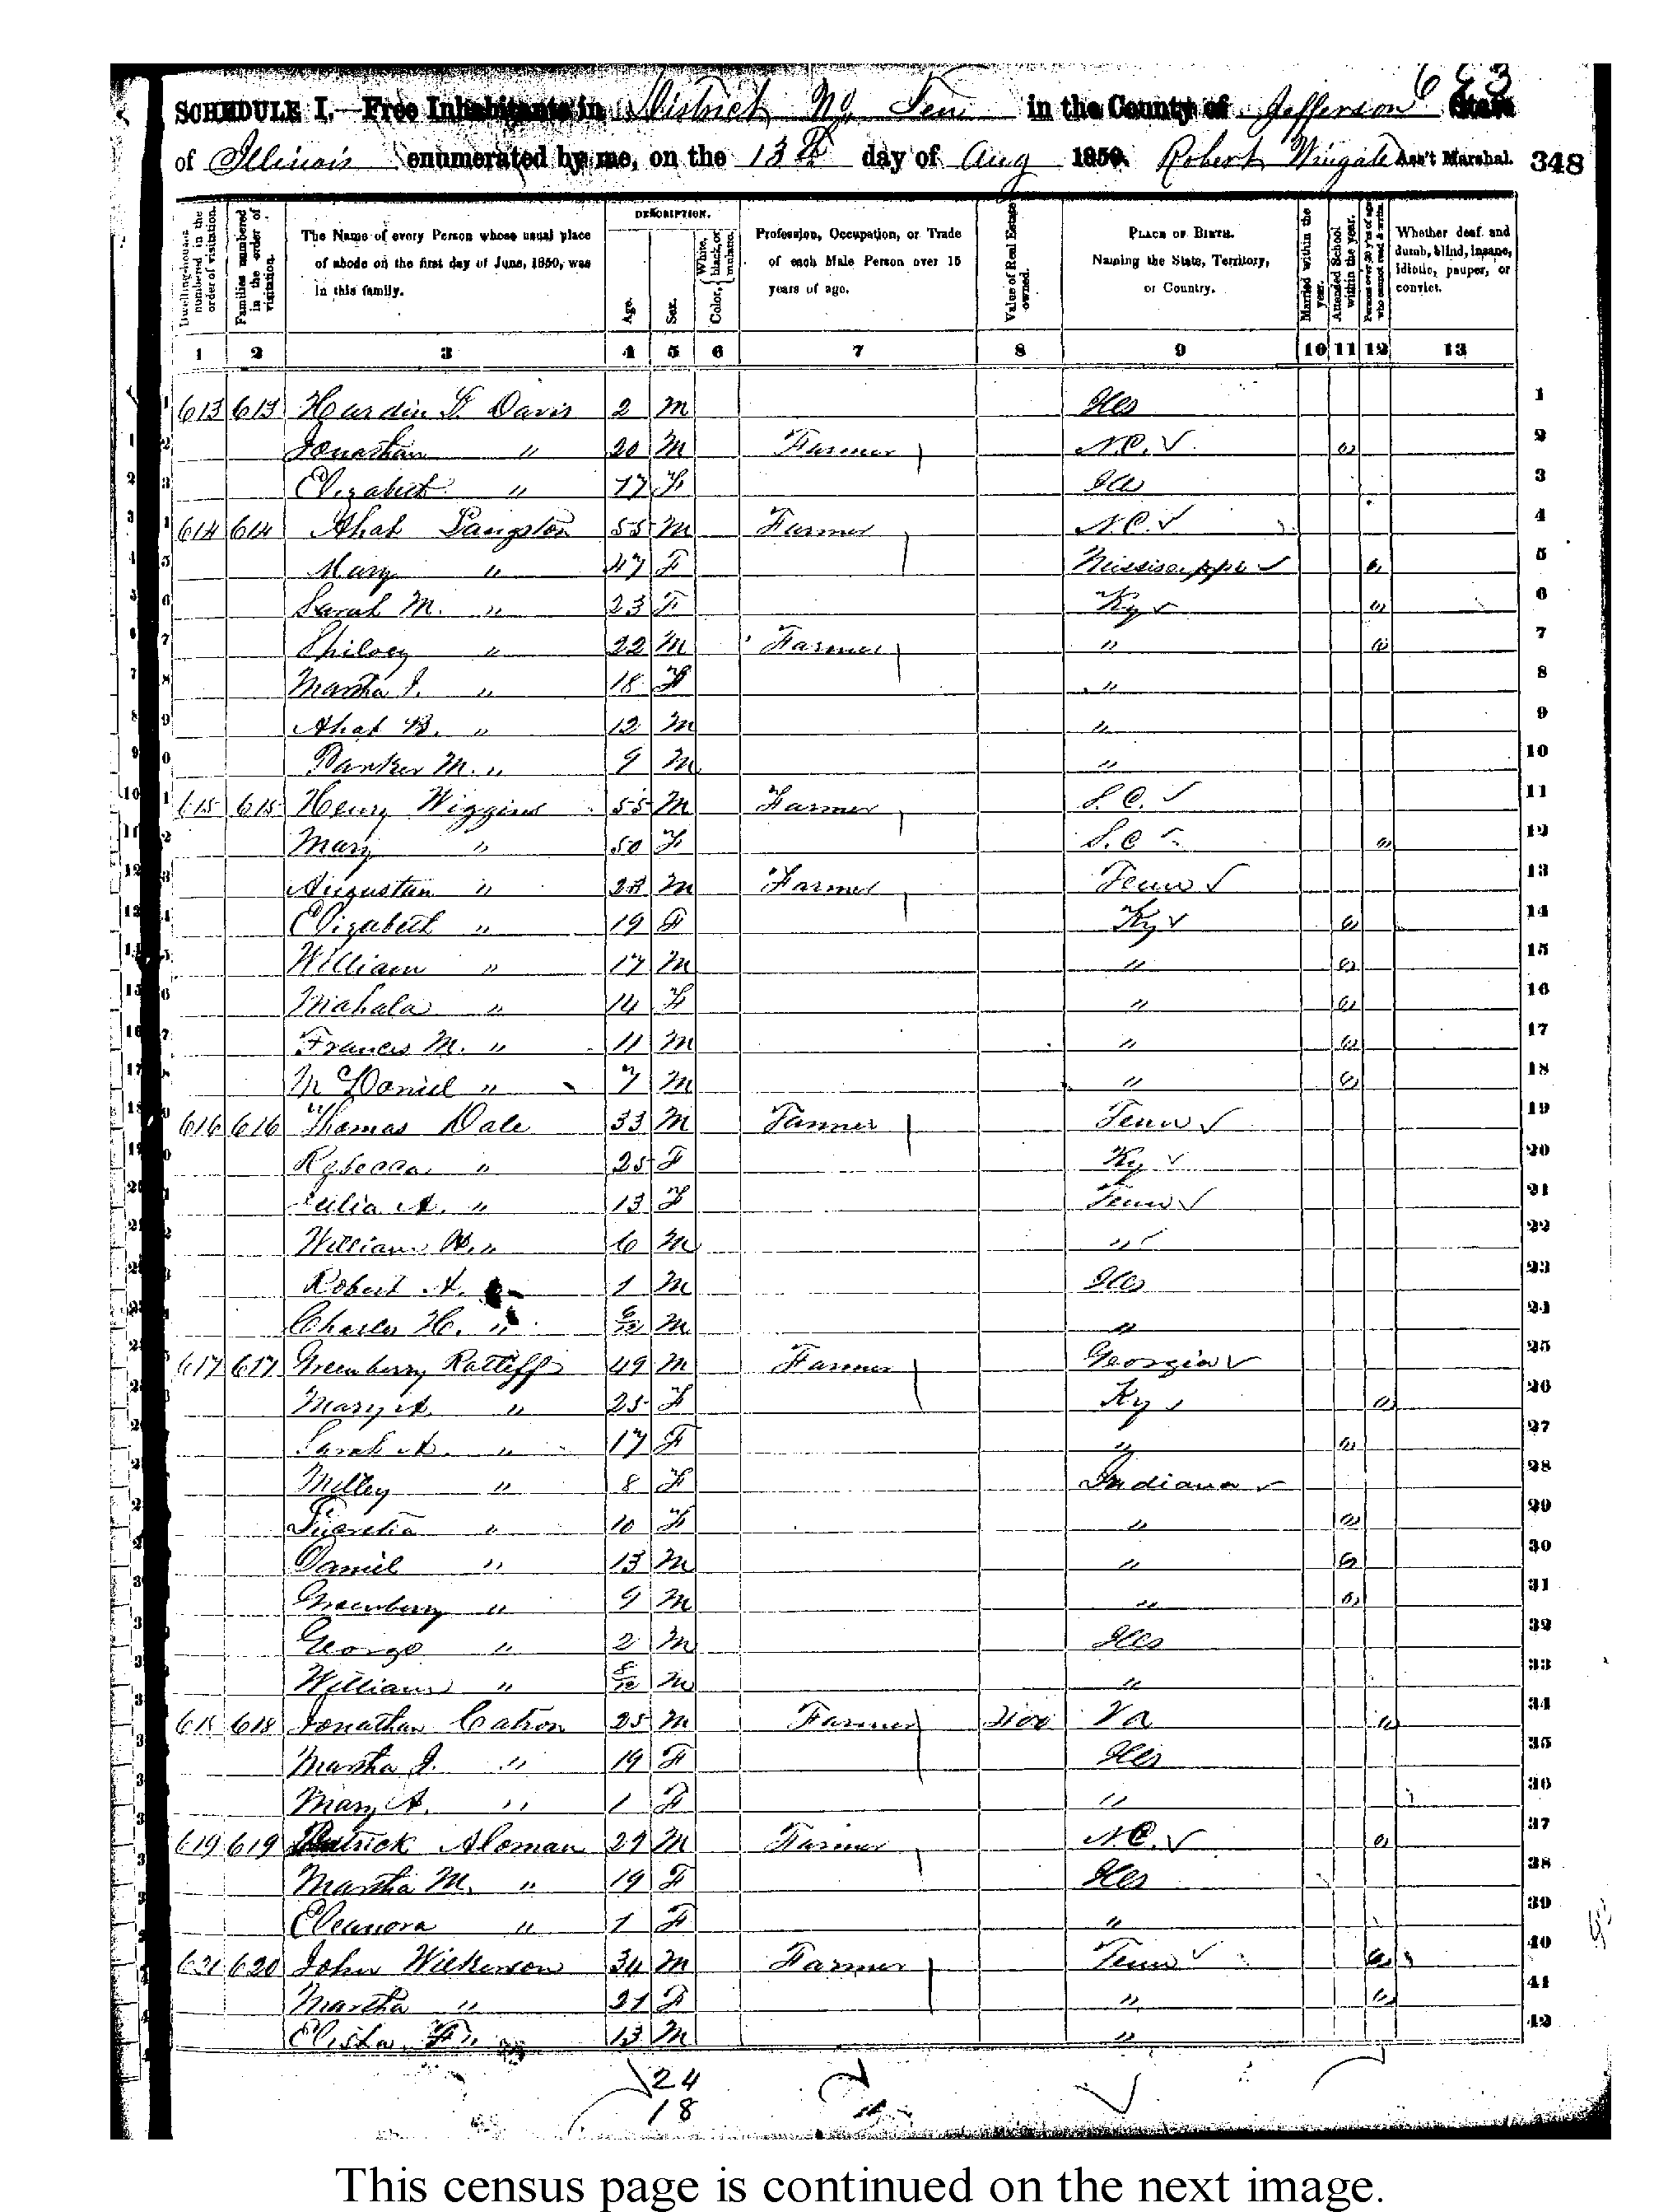 683
SCHEDULE I.—Free Inhabitants in District No. Ten in the County of Jefferson State
of Illinois enumerated by me, on the 13th day of Aug 1850. Robert Wingate Ass't Marshal. 348
Dwelling-houses numbered in the order of visitation.
Families numbered in the order of visitation.
The Name of every Person whose usual place of abode on the first day of June, 1850, was in this family.
DESCRIPTION.
Age.
Sex.
Color, White, black, or mulatto.
Profession, Occupation, or Trade of each Male Person over 15 years of age.
Value of Real Estate owned.
PLACE OF BIRTH. Naming the State, Territory, or Country.
Married within the year.
Attended School within the year.
Persons over 20 y'rs of age who cannot read & write.
Whether deaf and dumb, blind, insane, idiotic, pauper, or convict.
1 2 3 4 5 6 7 8 9 10 11 12 13
613 613 Hardin D Davis 2 M Ills 1
Jonathan " 20 M Farmer N.C. 2
Elizabeth " 17 F Ills 3
614 614 Ahab Langston 55 M Farmer N.C. 4
Mary " 47 F Mississippi 5
Sarah M. " 23 F Ky 6
Shilvey " 22 M Farmer " 7
Martha J. " 18 F " 8
Ahab B. " 12 M " 9
Parker M. " 9 M " 10
615 615 Henry Wiggins 55 M Farmer S.C. 11
Mary " 50 F S.C 12
Augustin " 23 M Farmer Tenn 13
Elizabeth " 19 F Ky 14
William " 17 M " 15
Mahala " 14 F " 16
Francis M. " 11 M " 17
McDaniel " 7 M " 18
616 616 Thomas Dale 33 M Farmer Tenn 19
Rebecca " 25 F Ky 20
Julia A. " 13 F Tenn 21
William " 6 M " 22
Robert A. 1 M Ills 23
Charles H. " 6/12 M " 24
617 617 Greenberry Ratliff 49 M Farmer Georgia 25
Mary A. " 25 F Ky 26
Sarah A. " 17 F " 27
Milley " 8 F Indiana 28
Lucretia " 10 F " 29
Daniel " 13 M " 30
Greenberry " 9 M " 31
George " 2 M Ills 32
William " 8/12 M " 33
618 618 Jonathan Catron 25 M Farmer 400 Va 34
Martha J. " 19 F Ills 35
Mary A. " 1 F " 36
619 619 Patrick Aloman 27 M Farmer N.C. 37
Martha M. " 19 F Ills 38
Eleanora " 1 F " 39
620 620 John Wilkerson 34 M Farmer Tenn 40
Martha " 21 F " 41
Elisha F. " 13 M " 42
24
18
This census page is continued on the next image.